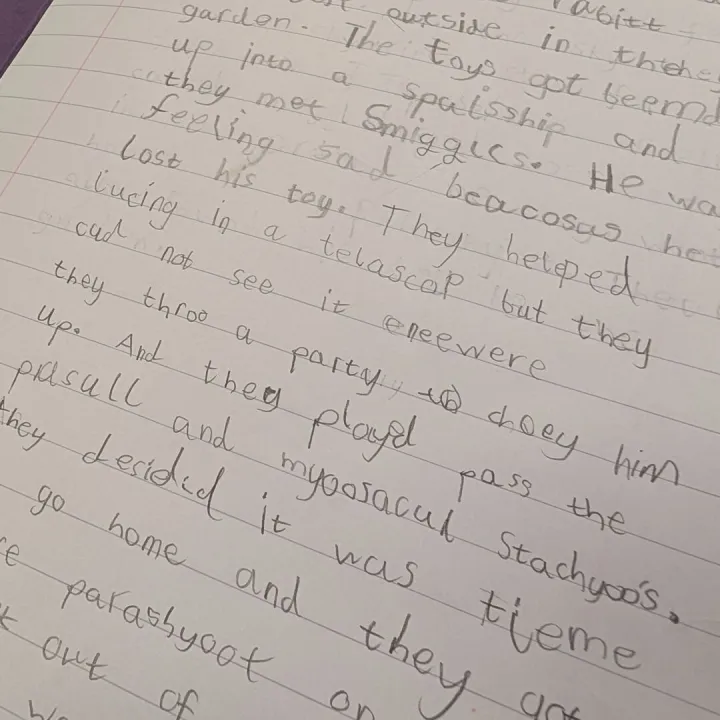 outside in
garden. The toys got beemd
up into a spaisship and
they met Smiggles. He wa
feeling sad beacosas he
lost his toy. They helped
lucing in a telascop but they
cud not see it eneewere
they throo a party to choey him
up. And they playd pass the
pasull and myoosacul Stachyoo's.
they desided it was tieme
go home and they go
parashyoot on
out of